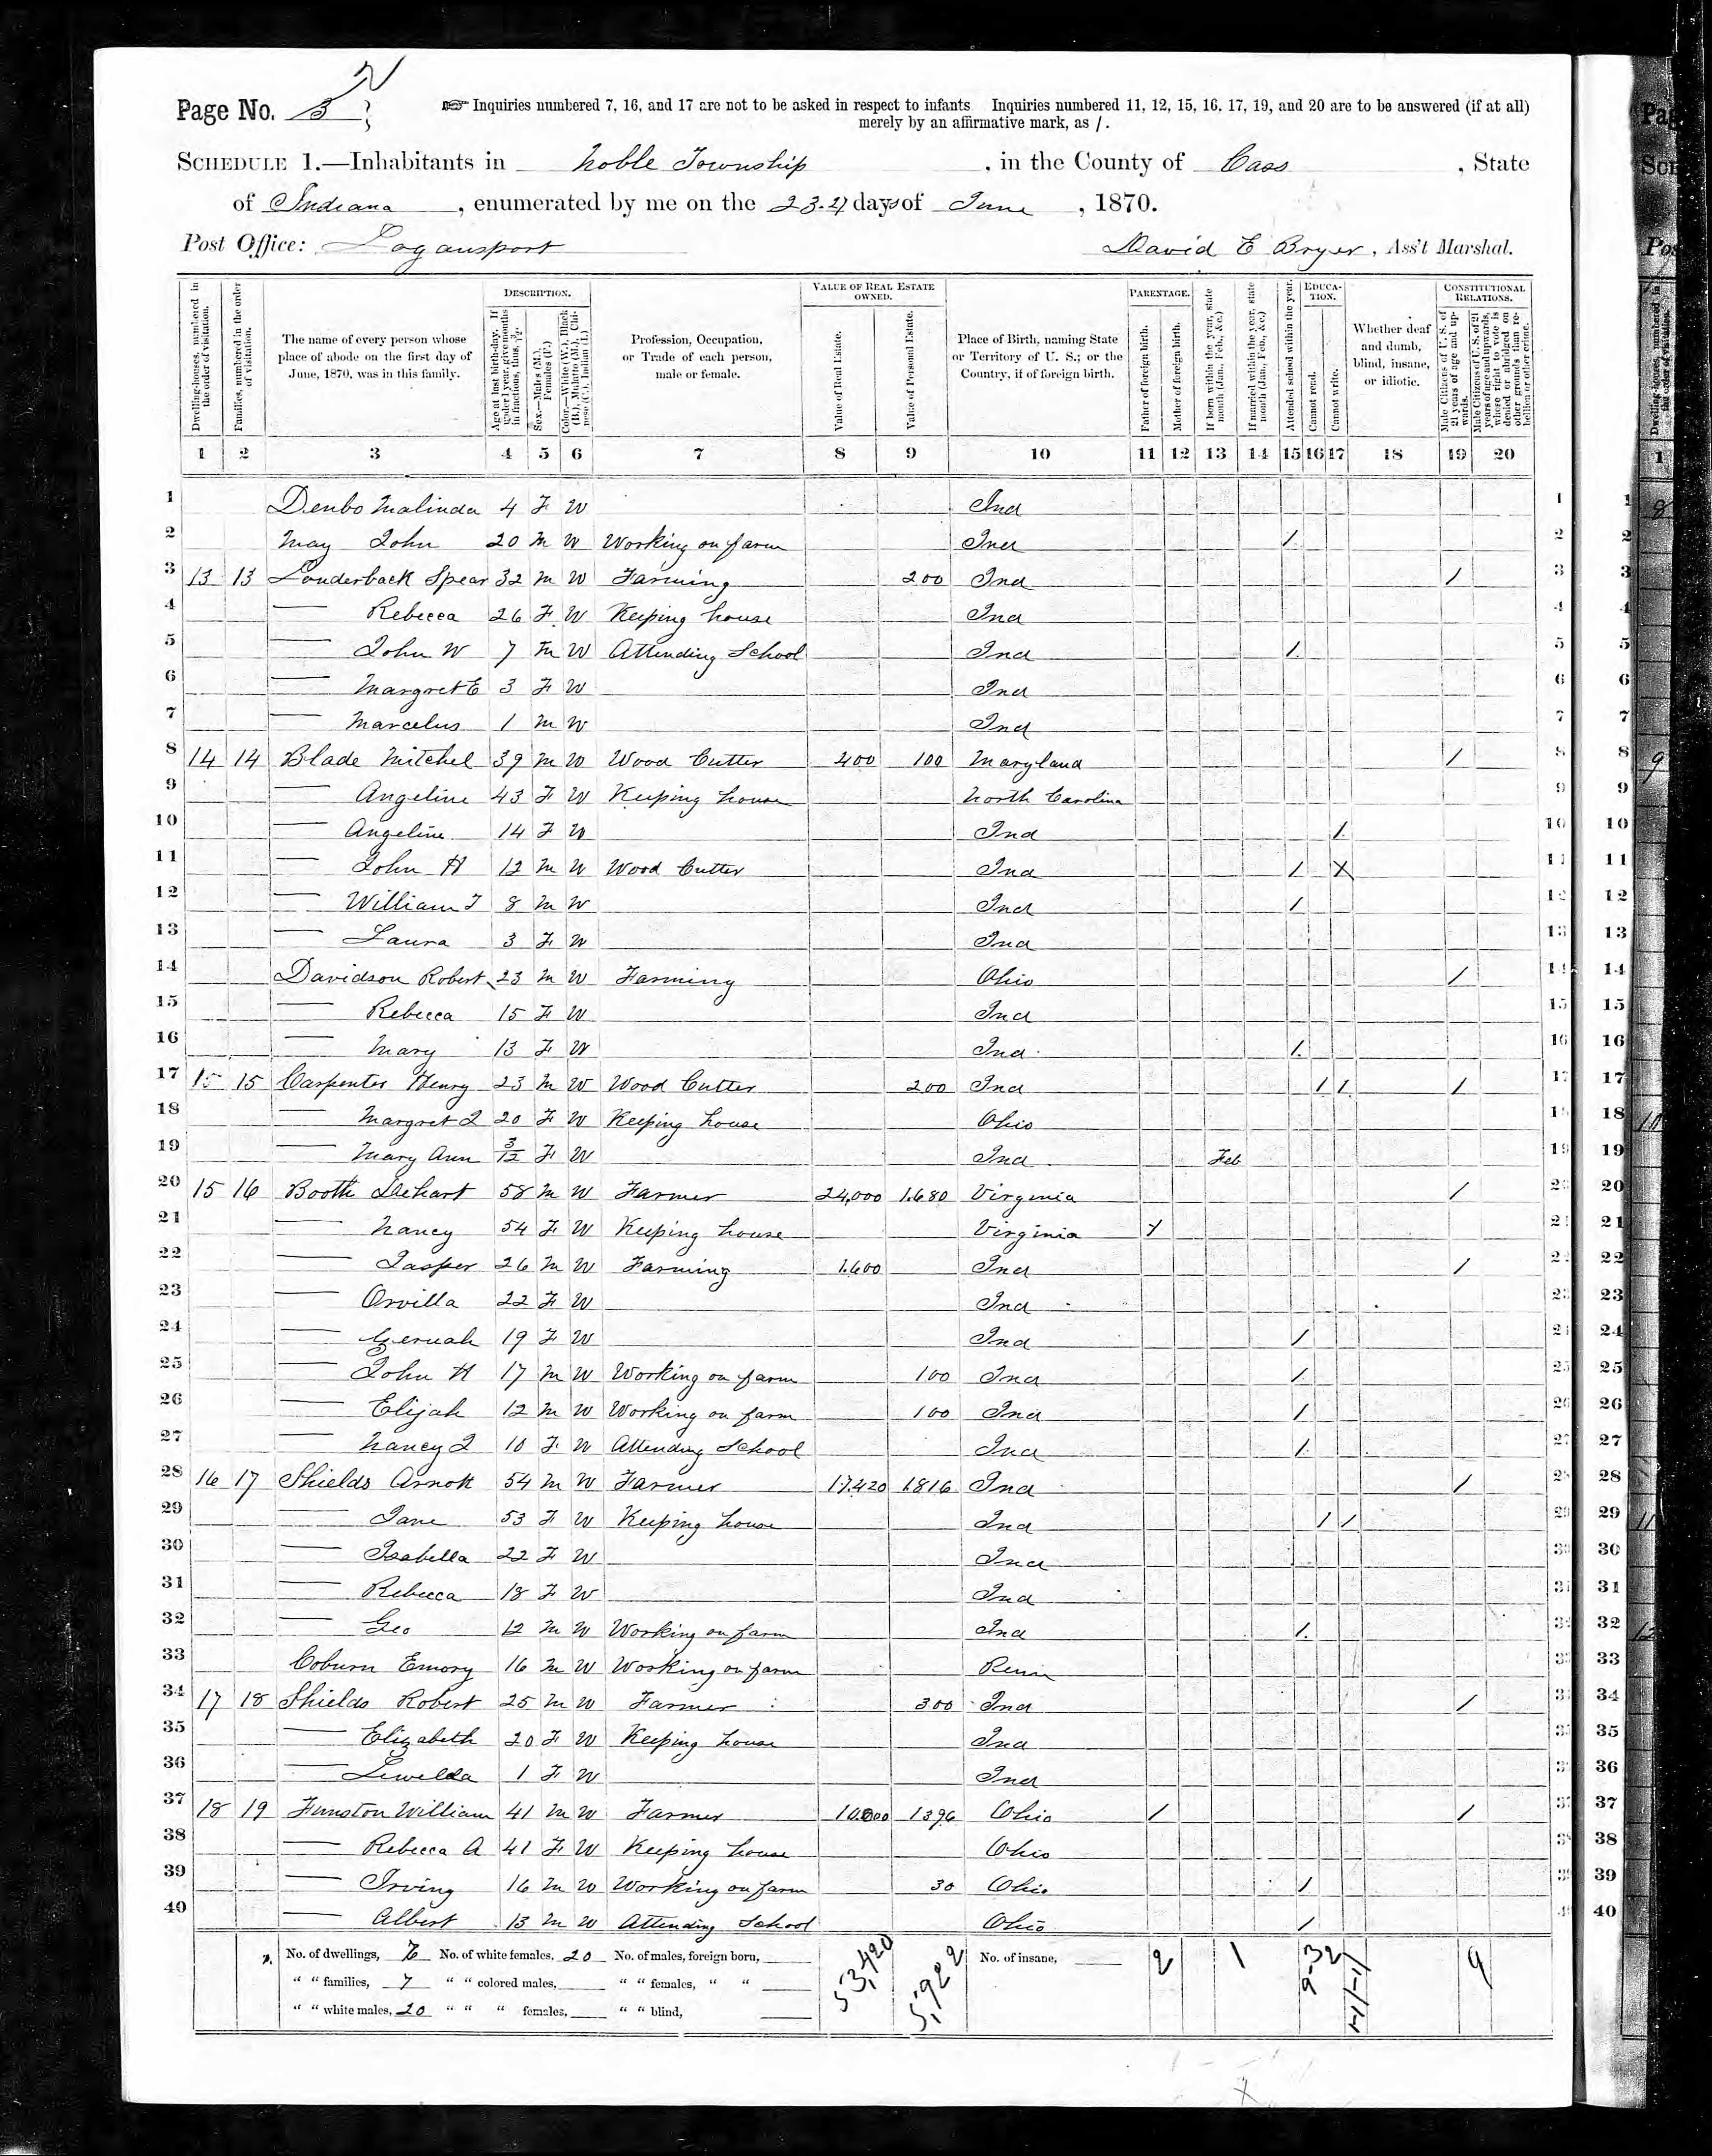 Page No. 3
☞ Inquiries numbered 7, 16, and 17 are not to be asked in respect to infants Inquiries numbered 11, 12, 15, 16, 17, 19, and 20 are to be answered (if at all)
merely by an affirmative mark, as /.
SCHEDULE 1.—Inhabitants in Noble Township, in the County of Cass, State
of Indiana, enumerated by me on the days of June, 1870.
Post Office: Logansport David E Bryer, Ass't Marshal.
DESCRIPTION. VALUE OF REAL ESTATE OWNED. PARENTAGE. EDUCATION. CONSTITUTIONAL RELATIONS.
Dwelling-houses, numbered in the order of visitation.
Families, numbered in the order of visitation.
The name of every person whose place of abode on the first day of June, 1870, was in this family.
Age at last birth-day. If under 1 year, give months in fractions, thus, 3/12.
Sex.—Males (M.), Females (F.)
Color.—White (W.), Black (B.), Mulatto (M.), Chinese (C.), Indian (I.)
Profession, Occupation, or Trade of each person, male or female.
Value of Real Estate.
Value of Personal Estate.
Place of Birth, naming State or Territory of U. S.; or the Country, if of foreign birth.
Father of foreign birth.
Mother of foreign birth.
If born within the year, state month (Jan., Feb., &c.)
If married within the year, state month (Jan., Feb., &c.)
Attended school within the year.
Cannot read.
Cannot write.
Whether deaf and dumb, blind, insane, or idiotic.
Male Citizens of U. S. of 21 years of age and upwards.
Male Citizens of U. S. of 21 years of age and upwards, whose right to vote is denied or abridged on other grounds than rebellion or other crime.
1 2 3 4 5 6 7 8 9 10 11 12 13 14 15 16 17 18 19 20
1 Denbo Malinda 4 F W Ind 1
2 May John 20 M W Working on farm Ind / 2
3 13 13 Louderback Spear 32 M W Farming 200 Ind / 3
4 — Rebecca 26 F W Keeping house Ind 4
5 — John W 7 M W Attending School Ind / 5
6 — Margret E 3 F W Ind 6
7 — Marcelus 1 M W Ind 7
8 14 14 Blade Mitchel 39 M W Wood Cutter 400 100 Maryland / 8
9 — Angeline 43 F W Keeping house North Carolina 9
10 — Angeline 14 F W Ind / 10
11 — John H 12 M W Wood Cutter Ind / X 11
12 — William T 8 M W Ind / 12
13 — Laura 3 F W Ind 13
14 Davidson Robert 23 M W Farming Ohio / 14
15 — Rebecca 15 F W Ind 15
16 — Mary 13 F W Ind / 16
17 15 15 Carpenter Henry 23 M W Wood Cutter 200 Ind / / / 17
18 — Margret J 20 F W Keeping house Ohio 18
19 — Mary Ann 3/12 F W Ind Feb 19
20 15 16 Booth Dehart 58 M W Farmer 24,000 1,680 Virginia / 20
21 — Nancy 54 F W Keeping house Virginia / 21
22 — Jasper 26 M W Farming 1,600 Ind / 22
23 — Orvilla 22 F W Ind 23
24 — Zeruah 19 F W Ind / 24
25 — John H 17 M W Working on farm 100 Ind / 25
26 — Elijah 12 M W Working on farm 100 Ind / 26
27 — Nancy J 10 F W Attending School Ind / 27
28 16 17 Shields Arnott 54 M W Farmer 17,420 1,816 Ind / 28
29 — Jane 53 F W Keeping house Ind / / 29
30 — Isabella 22 F W Ind 30
31 — Rebecca 18 F W Ind 31
32 — Geo 12 M W Working on farm Ind / 32
33 Coburn Emory 16 M W Working on farm Penn 33
34 17 18 Shields Robert 25 M W Farmer 300 Ind / 34
35 — Elizabeth 20 F W Keeping house Ind 35
36 — Lewelda 1 F W Ind 36
37 18 19 Funston William 41 M W Farmer 10,000 1396 Ohio / / 37
38 — Rebecca A 41 F W Keeping house Ohio 38
39 — Irving 16 M W Working on farm 30 Ohio / 39
40 — Albert 13 M W Attending School Ohio / 40
No. of dwellings, No. of white females, 20 No. of males, foreign born, 53,420 5,922 No. of insane, 2 1 9
" " families, 7 " " colored males, " " females, " "
" " white males, 20 " " " females, " " blind,